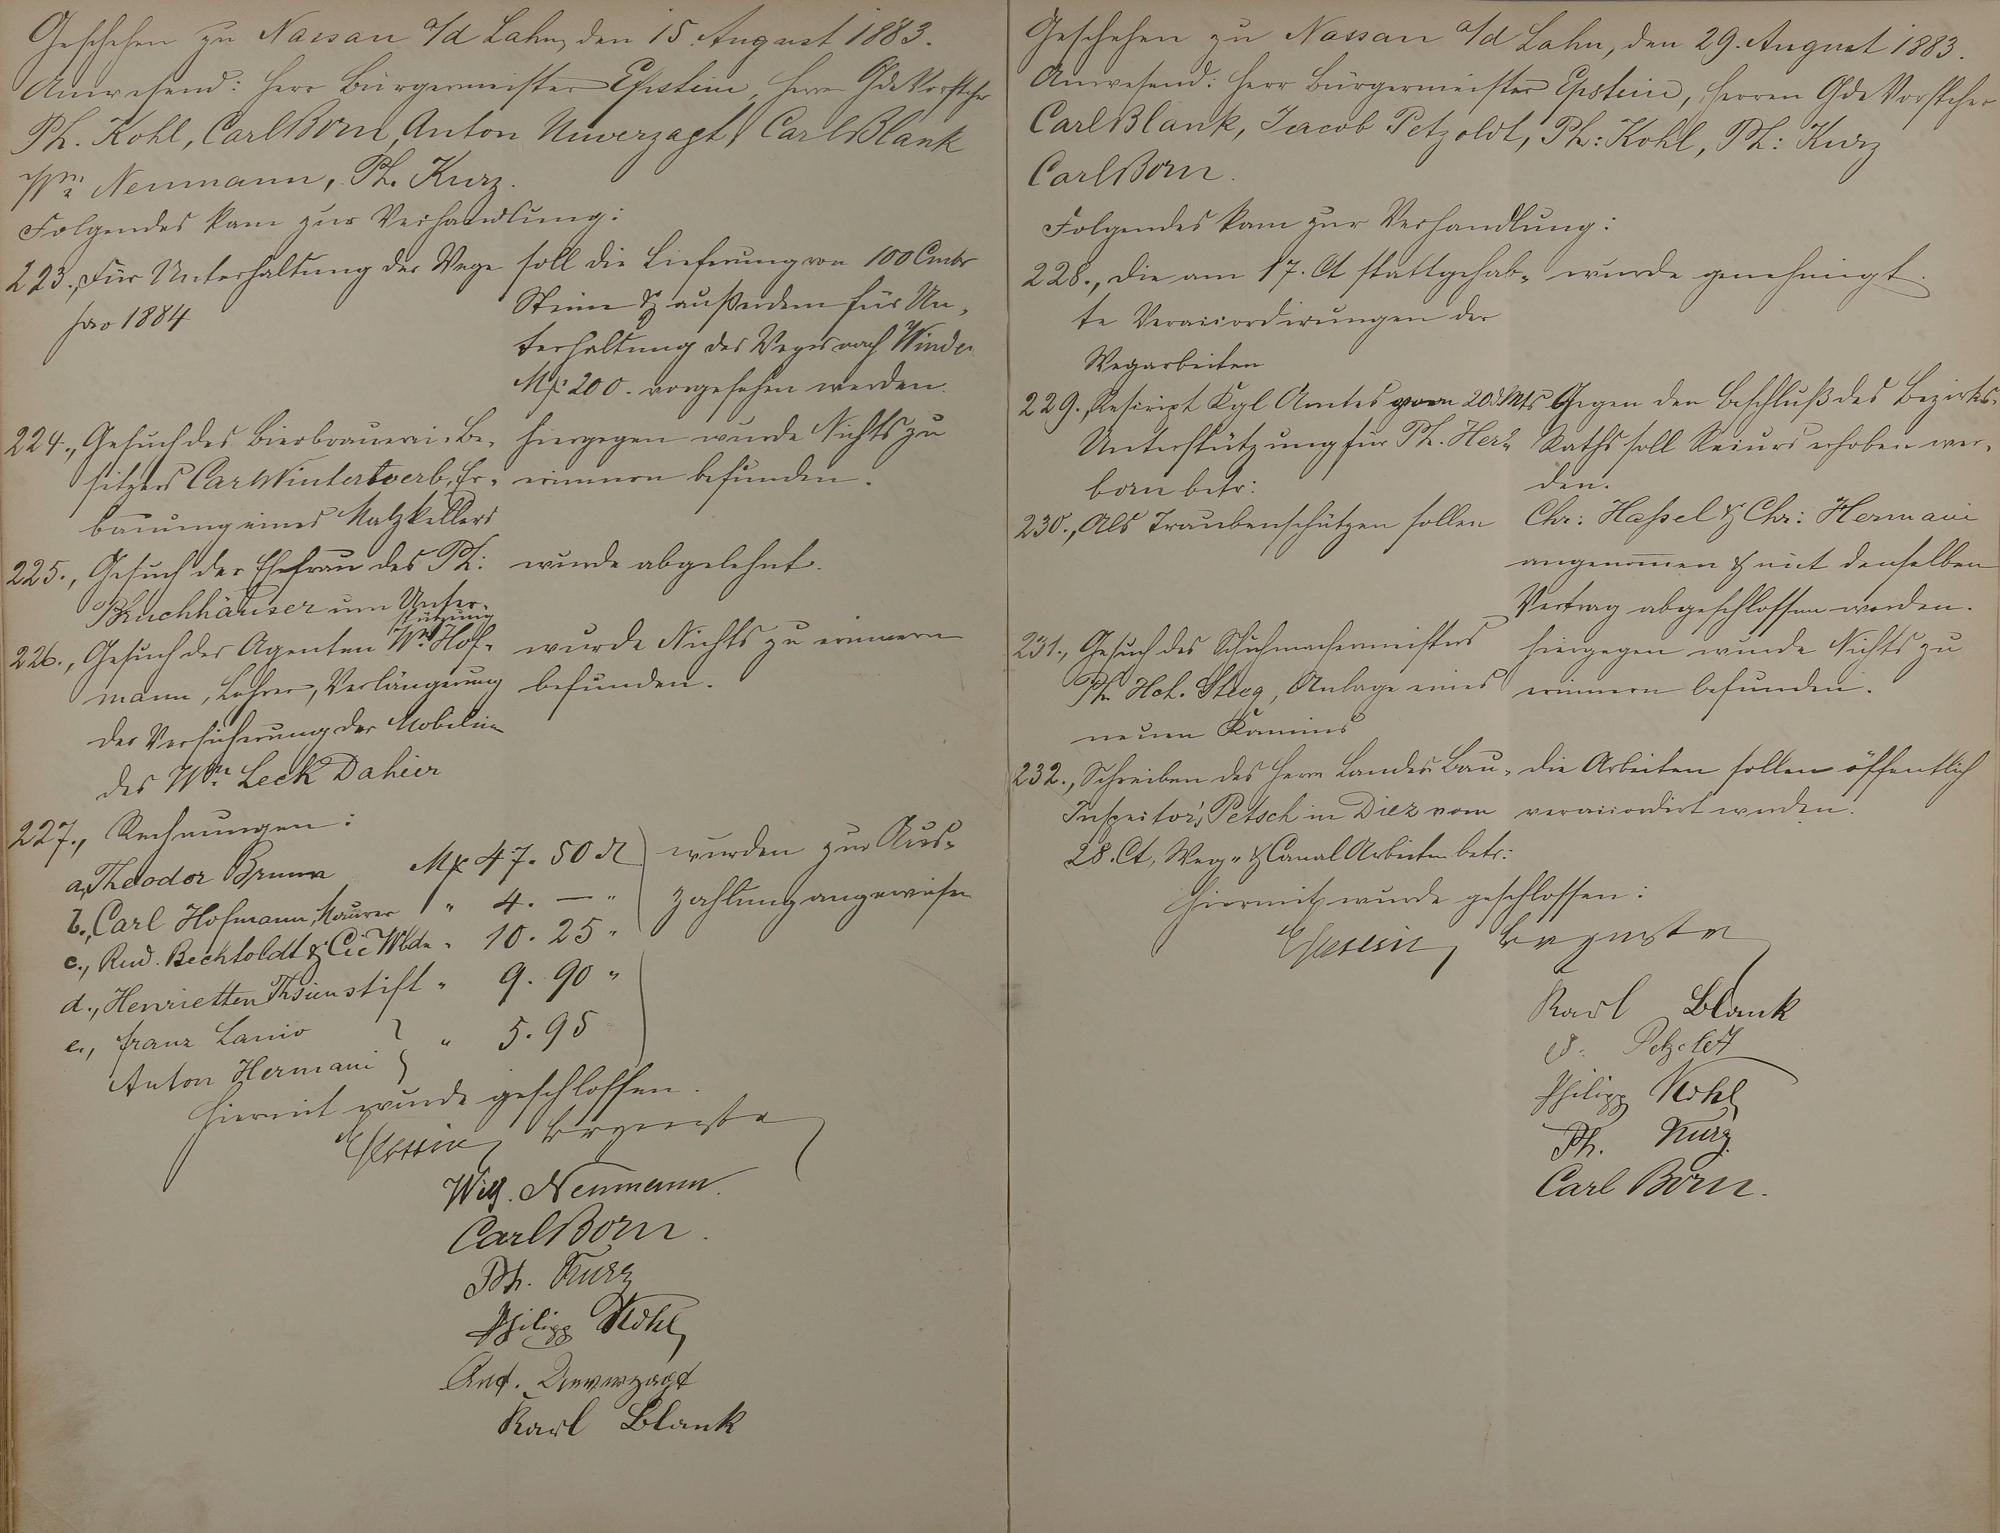 Geschehen zu Nassau a/d Lahn, den 15. August 1883.
Anwesend: Herr Bürgermeister Epstein, Herren Gde Vorsteher
Ph. Kohl, Carl Born, Anton Unverzagt, Carl Blank
Wm Neumann, Ph. Kurz.
Folgendes kam zur Verhandlung:
223., Für Unterhaltung der Wege
pro 1884
soll die Lieferung von 100 Cmtr
Steine & außerdem für Un-
terhaltung des Weges nach Winden
Mk 200. vorgesehen werden.
224., Gesuch des Bierbrauerei-Be-
sitzers Carl Winterwerb, Er-
bauung eines Malzkellers
hiergegen wurde Nichts zu
erinnern befunden.
225., Gesuch der Ehefrau des Ph:
Buchhäuser um Unter-
stützung
wurde abgelehnt.
226., Gesuch des Agenten Wm Hof-
mann, Lehrer, Verlängerung
der Versicherung der Mobilien
des Wm Leck Dahier
wurde Nichts zu erinnern
befunden.
227., Rechnungen:
a., Theodor Brunn Mk 47. 50 ₰
b., Carl Hofmann, Maurer " 4. — "
c., Rud. Bechtoldt & Cie Wbdn " 10. 25 "
d., Henrietten Theresienstift " 9. 90 "
e., Franz Lanio
Anton Hermani " 5. 95
wurden zur Aus-
zahlung angewiesen
Hiermit wurde geschlossen.
Epstein, Bürgermstr
Wilh. Neumann.
Carl Born.
Ph. Kurz
Philipp Kohl
Ant. Unverzagt
Karl Blank
Geschehen zu Nassau a/d Lahn, den 29. August 1883.
Anwesend: Herr Bürgermeister Epstein, Herren Gde Vorsteher
Carl Blank, Jacob Petzoldt, Ph: Kohl, Ph: Kurz
Carl Born.
Folgendes kam zur Verhandlung:
228., Die am 17. Ct stattgehab-
te Veraccordirungen der
Wegarbeiten
wurde genehmigt.
229., Rescript Kgl Amtes vom 20. d Mts
Unterstützung für Ph. Her-
born betr:
Gegen den Beschluß des Bezirks-
Raths soll Recurs erhoben wer-
den.
230., Als Traubenschützen sollen
Chr: Haßel & Chr: Hermani
angenommen & mit denselben
Vertrag abgeschlossen werden.
231., Gesuch des Schuhmachermeisters
Ph. Hch. Steeg, Anlage eines
neuen Kamins
hiergegen wurde Nichts zu
erinnern befunden.
232., Schreiben des Herrn Landes Bau-
Inspector's Petsch in Diez vom
28. Ct, Weg- & Canal Arbeiten betr:
die Arbeiten sollen öffentlich
veraccordirt werden.
Hiermit wurde geschlossen:
Epstein, Bürgermstr
Karl Blank
Petzoldt
Philipp Kohl
Ph. Kurz
Carl Born.